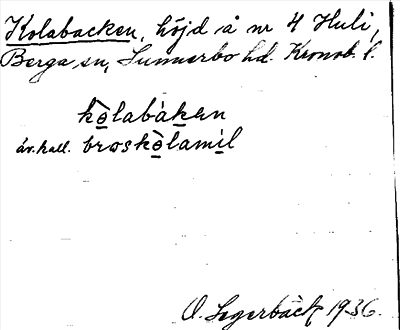 Kolabacken, höjd å nr 4 Huli,
Berga sn, Sunnerbo hd. Kronob. l.
kòlabàken
äv. kall. broskòlamìl
O. Segerbäck 1936.